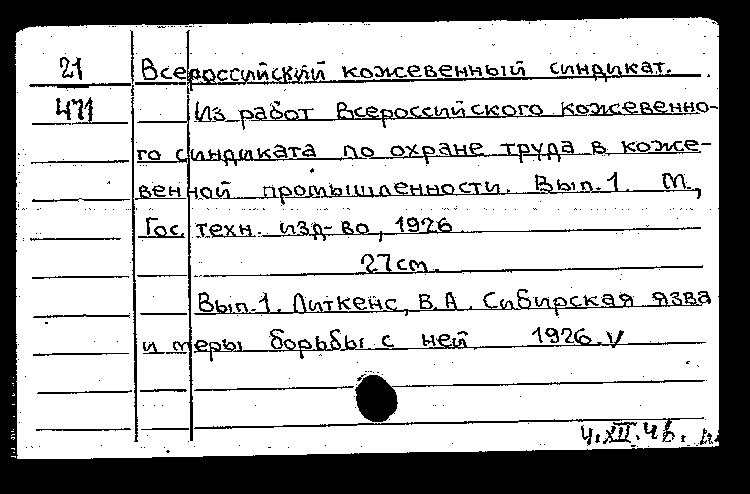 21 Всероссийский кожевенный синдикат.
471 Из работ Всероссийского кожевенно-
го синдиката по охране труда в коже-
венной промышленности. Вып.1. М.,
Гос. техн. изд-во, 1926
27см.
Вып.1. Литкенс, В.А. Сибирская язва
и меры борьбы с ней 1926. V
4.XII.46.